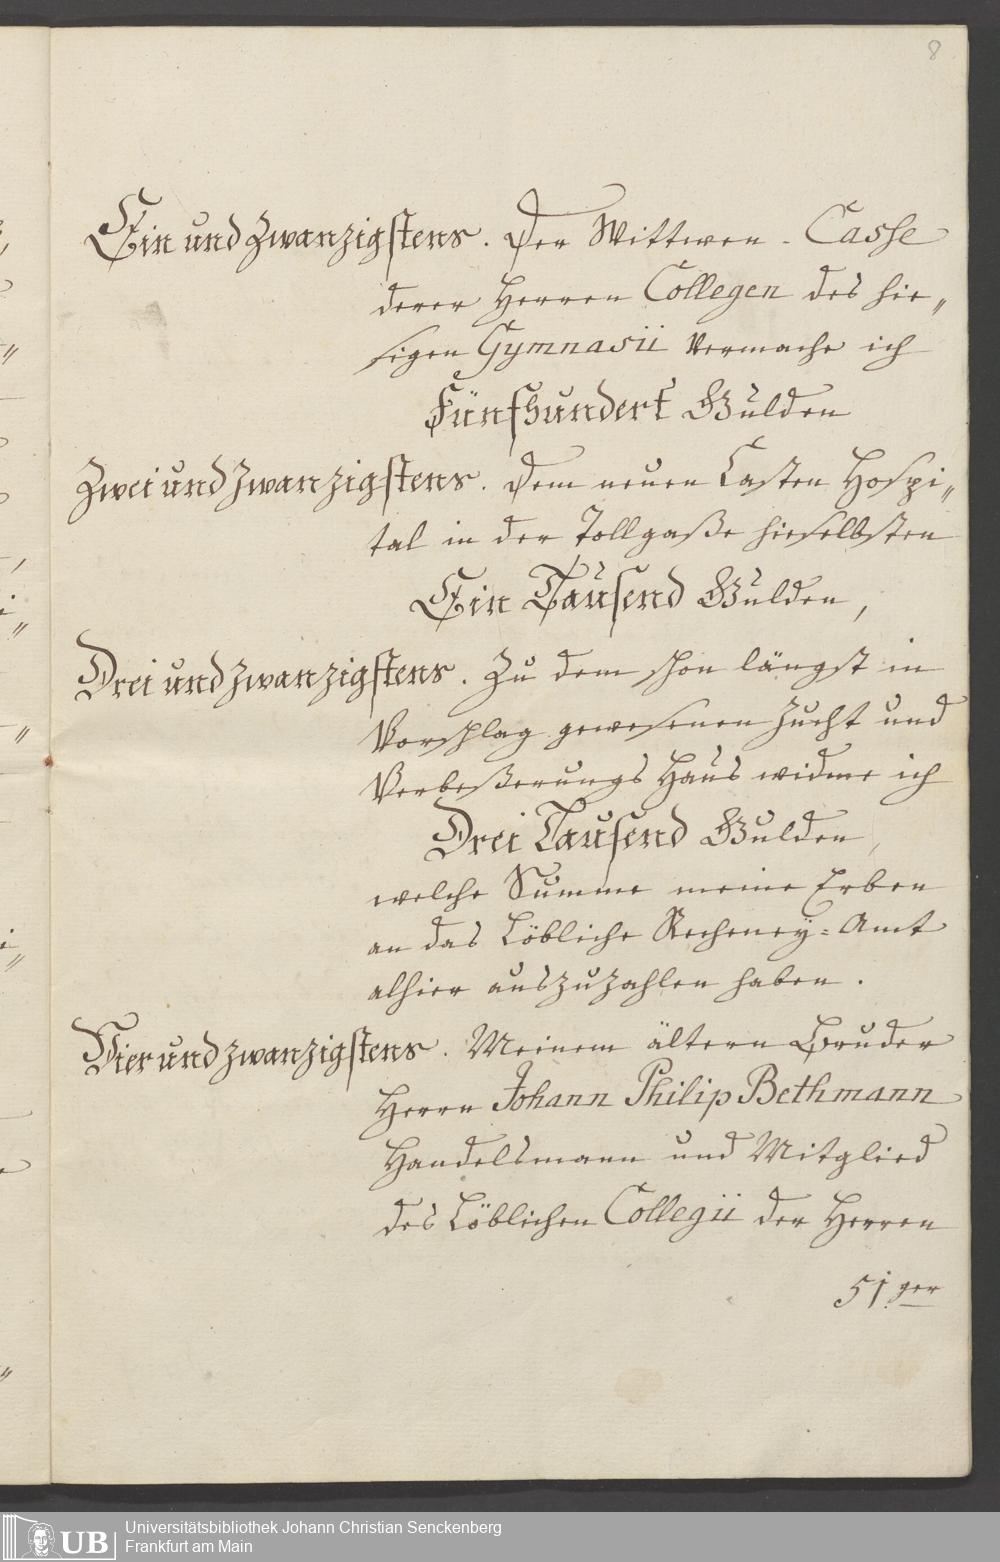 8
Ein und Zwanzigstens. Der Wittwen-Casse
derer Herren Collegen des hie„
sigen Gymnasii vermache ich
Fünfhundert Gulden
Zwei und Zwanzigstens. Dem neuen Casten Hospi„
tal in der Tollgaße hieselbsten
Ein Tausend Gulden,
Drei und Zwanzigstens. Zu dem schon längst in
Vorschlag gewesenen Zucht und
Verbeßerungs Haus widme ich
Drei Tausend Gulden,
welche Summe meine Erben
an das Löbliche Recheney-Amt
alhier auszuzahlen haben.
Vier und Zwanzigstens. Meinem ältern Bruder
Herrn Johann Philip Bethmann
Handelsmann und Mitglied
des Löblichen Collegii der Herren
51ger
UB Universitätsbibliothek Johann Christian Senckenberg
Frankfurt am Main